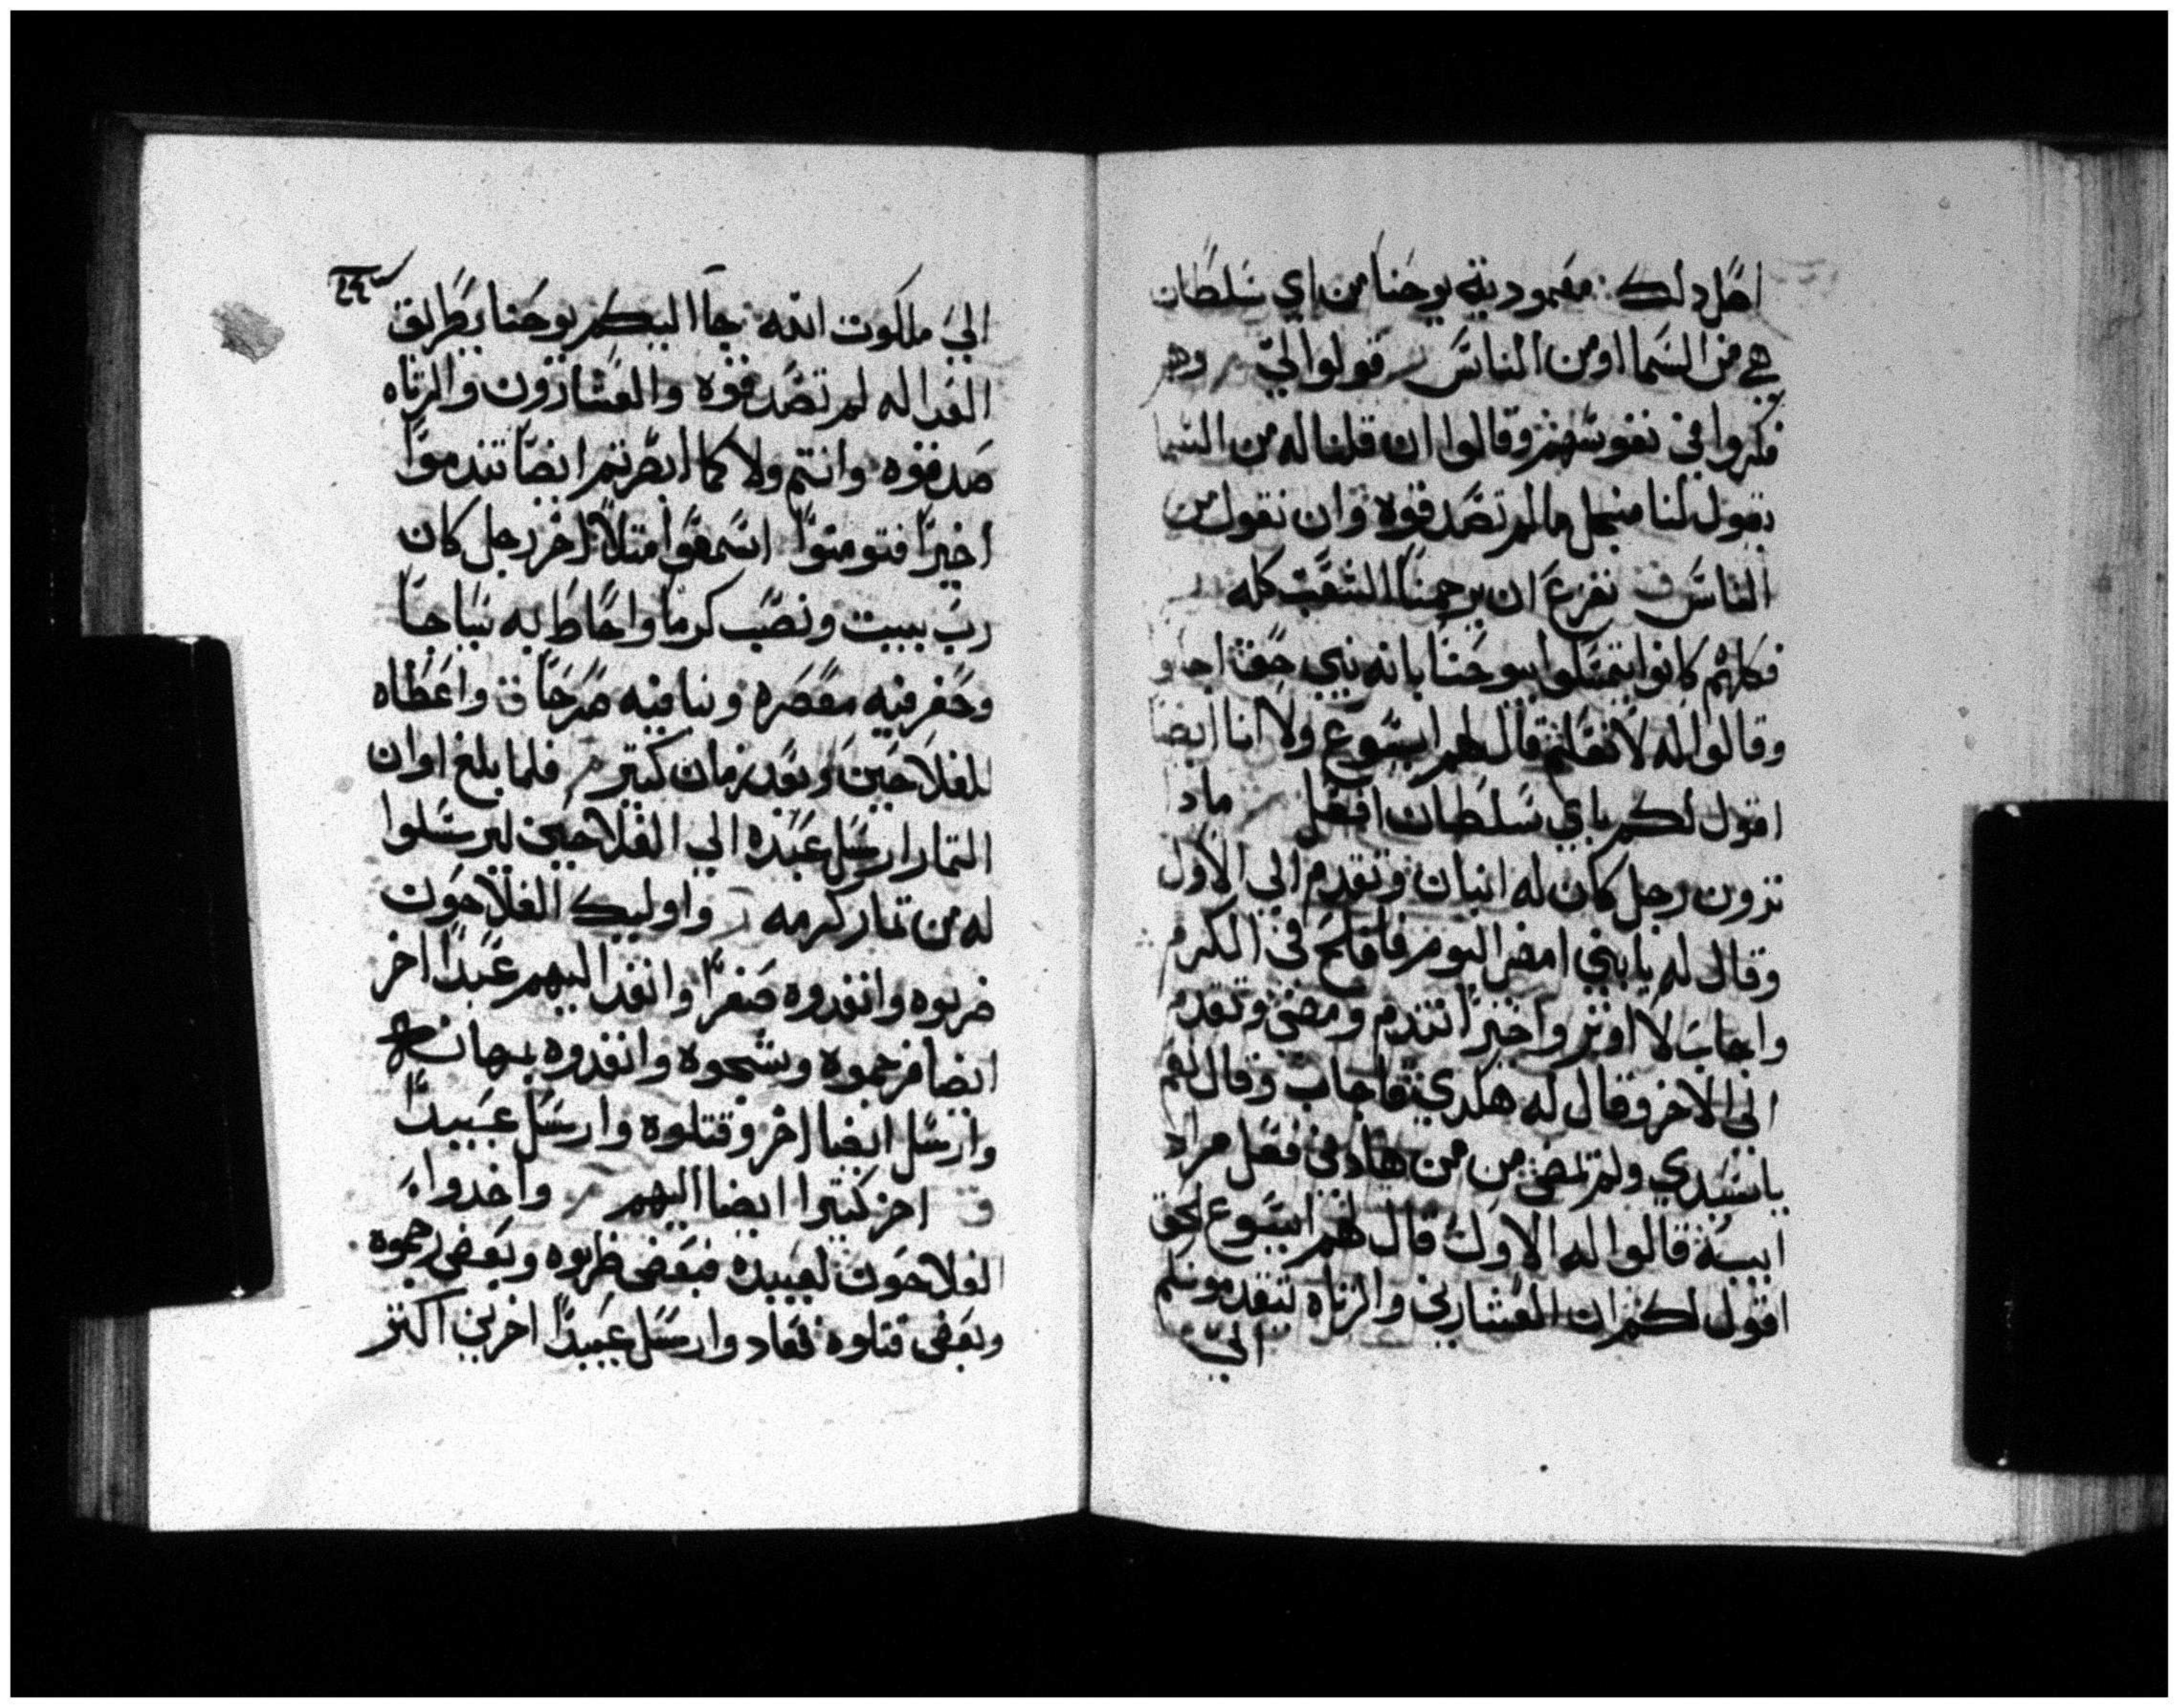 اصل دلك معموديه يوحنا من اي سلطان
هي من السما او من الناس قولوا لي وهم
فكروا في نفوسهم وقالوا ان قلنا له من السما
يقول لنا منجل ما لم تصدقوه وان نقول من
الناس نفزع ان يرجمنا الشعب كله
فكلهم كانوا يتمسكوا بيوحنا بانه نبي حق
وقالوا له لا نعلم قال لهم ايسوع ولا انا ايضا
اقول لكم باي سلطان افعل مادا
ترون رجل كان له ابنان وتقدم الي الاول
وقال له يا بني امض اليوم فافلح في الكرم
واجاب لا اوثر واخيرا تندم ومضي وتقدم
الي الاخر وقال له هكدي فاجاب وقال نعم
يا سيدي ولم يمضي من من هادين فعل مراد
ابيه قالوا له الاول قال لهم ايسوع الحق
اقول لكم ان العشارين والزناه تتقدمونكم
الي
الي ملكوت الله جا اليكم يوحنا بطريق
العداله لم تصدقوه والعشارون والزناه
صدقوه وانتم ولا كما ابصرتم ايضا تندموا
اخيرا فتومنوا اسمعوا متلا اخر رجل كان
رب بيت ونصب كرما واحاط به سياجا
وحفر فيه معصره وبنا فيه صرحا واعطاه
للفلاحين وبعد زمان كتير فلما بلغ اوان
التمار ارسل عبده الي الفلاحين ليرسلوا
له من تمار كرمه واوليك الفلاحون
ضربوه وانفدوه صفرا وانفد اليهم عبدا اخر
ايضا فرجموه وشجوه وانفدوه بمهانه
وارسل ايضا اخر وقتلوه وارسل عبيدا
اخر كتيرا ايضا اليهم واخدوا
الفلاحون لعبيده فبعض ضربوه وبعض رجموه
وبعض قتلوه فعاد وارسل عبيدا اخرين اكتر